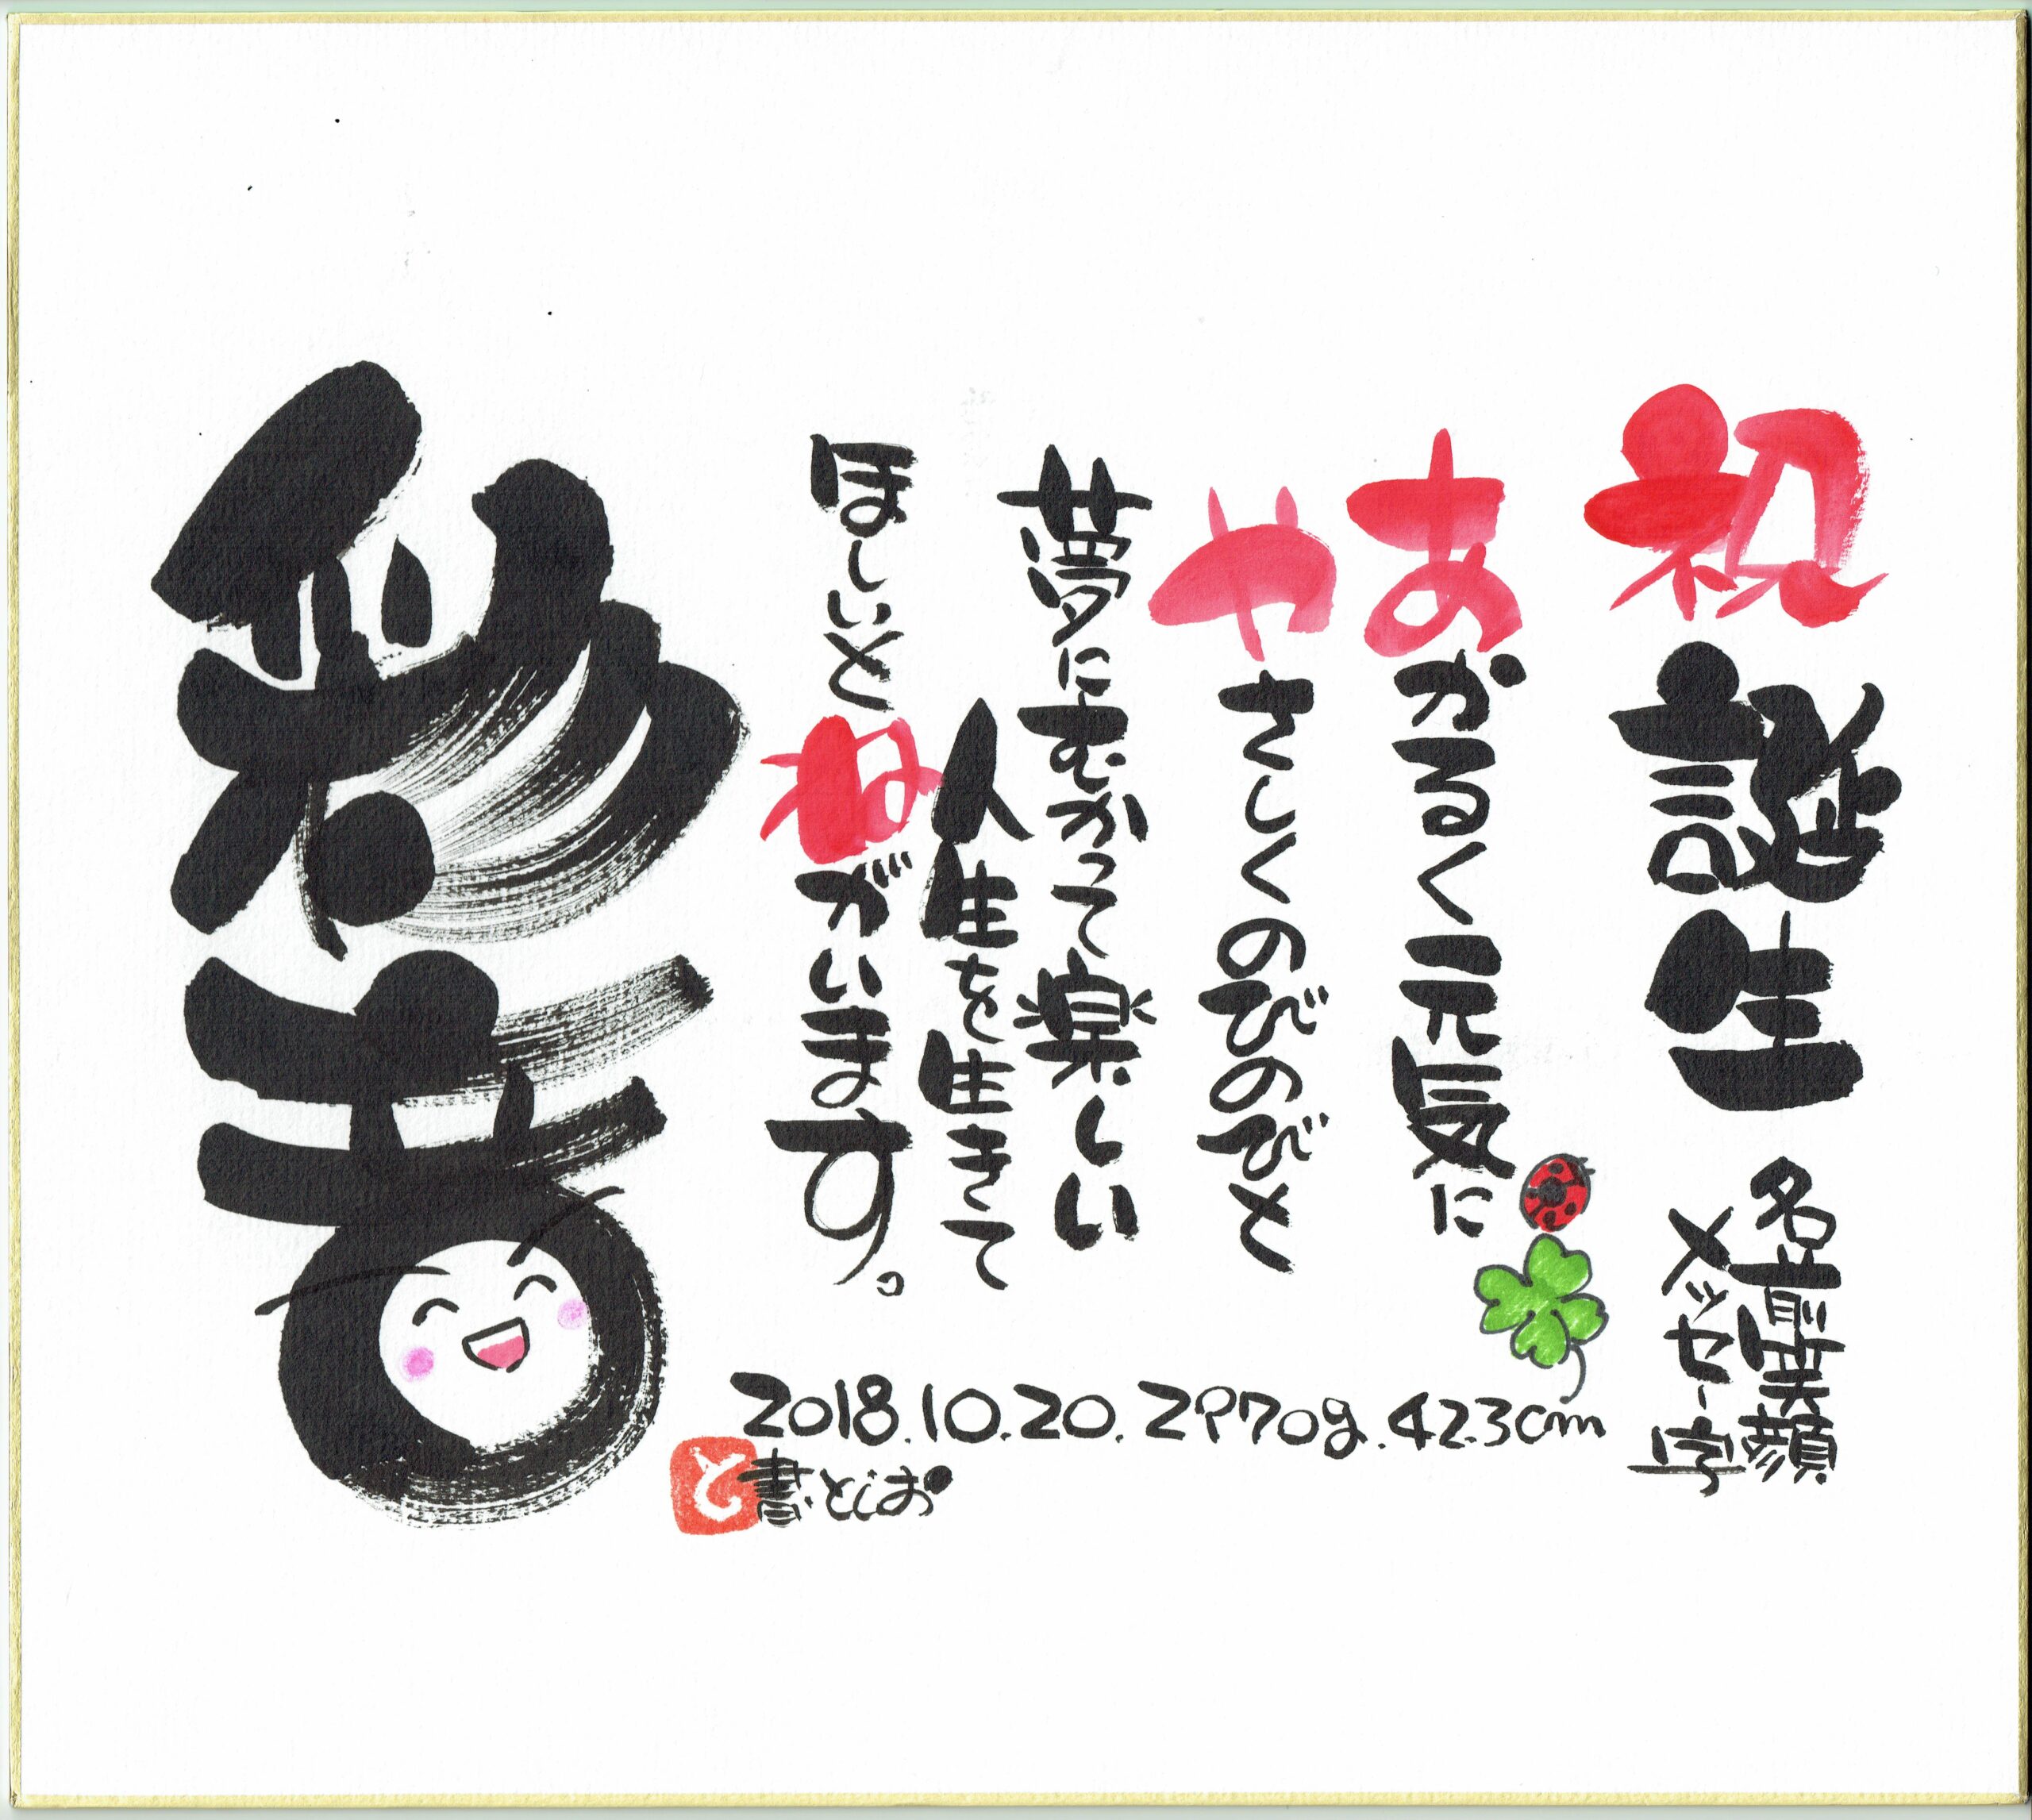 祝誕生
名前笑顔
メッセー字
あかるく元気に
やさしくのびのびと
夢にむかって楽しい
人生を生きて
ほしいと ねがいます。
彩音
2018.10.20.2970g.42.3cm
と
書としお